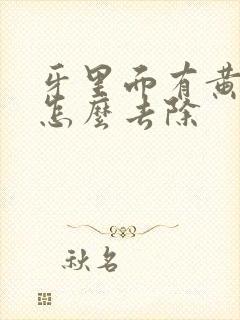 牙里面有黄
怎麼去除
秋名